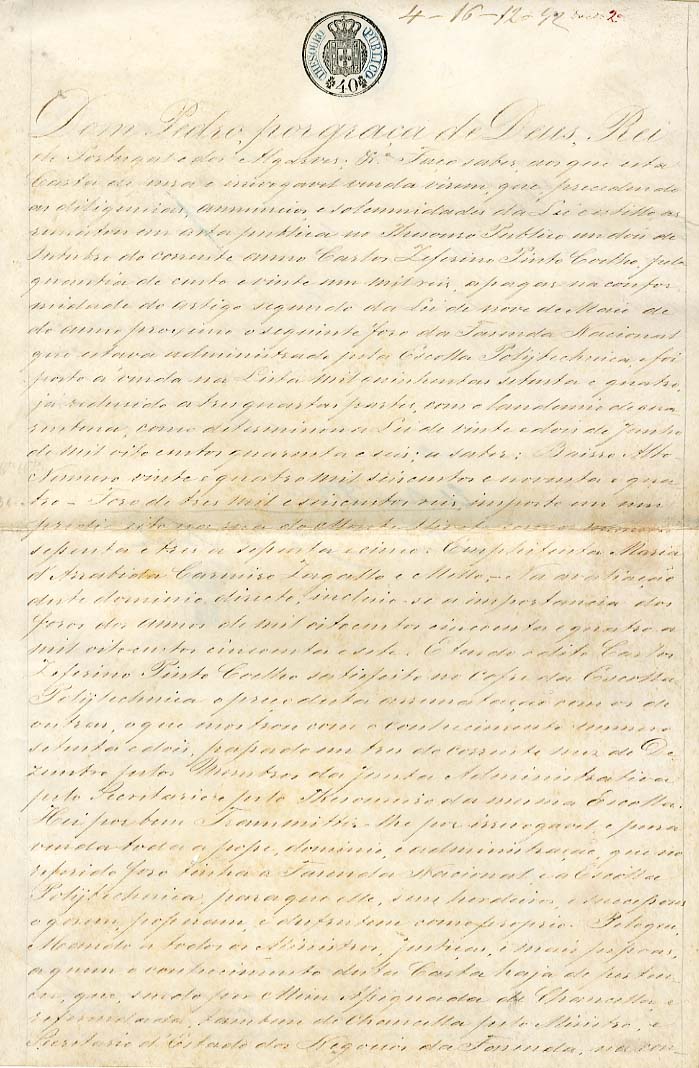 4-16-12-92
2
THESOURO PUBLICO
40
Dom Pedro por graça de Deus, Rei
de Portugal e dos Algarves, &.ª Faço saber aos que esta
Carta de mera e irrevogavel venda virem, que, precedendo
as diligencias, annuncios e solemnidades da Lei e estillo ar
rematou em asta publica no Thesouro Publico em dois de
Outubro do corrente anno Carlos Zeferino Pinto Coelho, pela
quantia de cento e vinte um mil reis, a pagar na confor
midade do artigo segundo da Lei de nove de Maio de
do anno proximo o seguinte foro da Fazenda Nacional
que estava administrado pela Escolla Polytechnica, e foi
posto á venda na Lista mil quinhentas setenta e quatro,
já reduzido a tres quartas partes, com o laudemio de qua
rentena, como determinou a Lei de vinte e dois de Junho
de mil oito centos quarenta e seis; a saber: Bairro Alto
Numero vinte e quatro mil seiscentos e noventa e qua
tro - Foro de tres mil e seiscentos reis, imposto em um
predio sito na rua do Monte Olivete
sessenta e tres a sessenta e cinco: Emphiteuta Maria
d'Arrabida Casimiro Zagallo e Mello, - Na avaliação
deste dominio directo, incluio-se a importancia dos
foros dos annos de mil oitocentos cincoenta e quatro a
mil oitocentos cincoenta e sete. E tendo o dito Carlos
Zeferino Pinto Coelho satisfeito no cofre da Escolla
Polytechnica o preço desta arrematação com os de
outras, o que mostrou com o conhecimento numero
setenta e dois, passado em tres do corrente mez de De
zembro pelos Membros da junta Administrativa
pelo Secretario e pelo Thesoureiro da mesma Escolla:
Hei por bem Transmittir-lhe por irrevogavel e pura
venda toda a posse, dominio, e administração, que no
referido foro tinha a Fazenda Nacional, e a Escolla
Polytechnica, para que elle, seus herdeiros, e successores
o gozem, possuam, e desfrutem como proprio. Pelo que,
Mando a todos os Ministros, justiças, e mais pessoas,
a quem o conhecimento desta Carta haja de perten
cer, que, sendo por Mim Assignada de Chancella, e
referendada tambem de Chancella pelo Ministro, e
Secretario d'Estado dos Negocios da Fazenda, na con